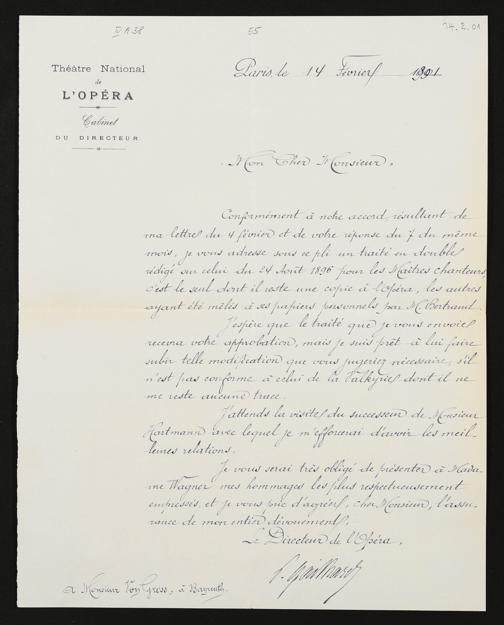 IV A 38
55
14. 2. 01
Théâtre National
de
L'OPÉRA
Cabinet
DU DIRECTEUR
Paris, le 14 Février 1901
Mon Cher Monsieur,
Conformément à notre accord, résultant de
ma lettre du 4 février et de votre réponse du 7 du même
mois, je vous adresse sous ce pli un traité en double
rédigé sur celui du 24 Août 1896 pour les Maîtres Chanteurs
c'est le seul dont il reste une copie à l'Opéra, les autres
ayant été mêlés à ses papiers personnels par M. Bertrand.
J'espère que le traité que je vous envoie
recevra votre approbation, mais je suis prêt à lui faire
subir telle modification que vous jugeriez nécessaire, s'il
n'est pas conforme à celui de la Valkyrie dont il ne
me reste aucune trace.
J'attends la visite du successeur de Monsieur
Hartmann avec lequel je m'efforcerai d'avoir les meil-
leures relations.
Je vous serai très obligé de présenter à Mada-
me Wagner mes hommages les plus respectueusement
empressés, et je vous prie d'agréer, cher Monsieur, l'assu-
rance de mon entier dévouement.
Le Directeur de l'Opéra,
P. Gailhard
a Monsieur Von Gross, à Bayreuth.